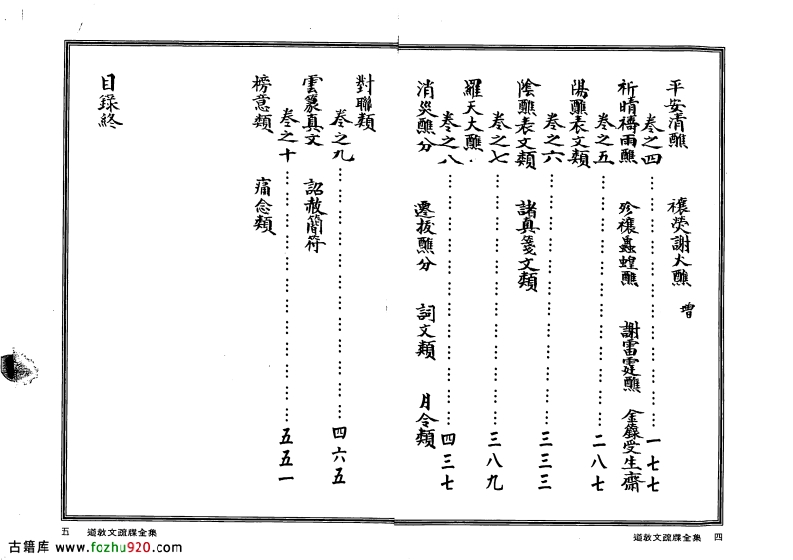 平安清醮　禳熒謝火醮　增
卷之四……一七七
祈晴禱雨醮　殄禳蟲蝗醮　謝雷霆醮　金籙受生齋
卷之五……二八七
陽醮表文類
卷之六……三三三
陰醮表文類　諸真箋文類
卷之七……三八九
羅天大醮．
卷之八……四三七
消災醮分　遷拔醮分　詞文類　月令類
對聯類
卷之九……四六五
雲篆真文　詔赦簡符
卷之十……五五一
榜意類　痛念類
目錄終
道敎文疏牒全集　四
五　道敎文疏牒全集
古籍库 www.fozhu920.com